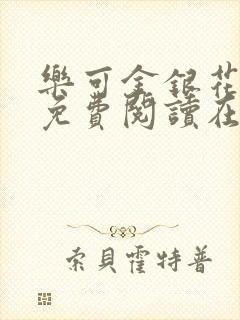 樂可金銀花
免費閱讀在
索貝霍特普